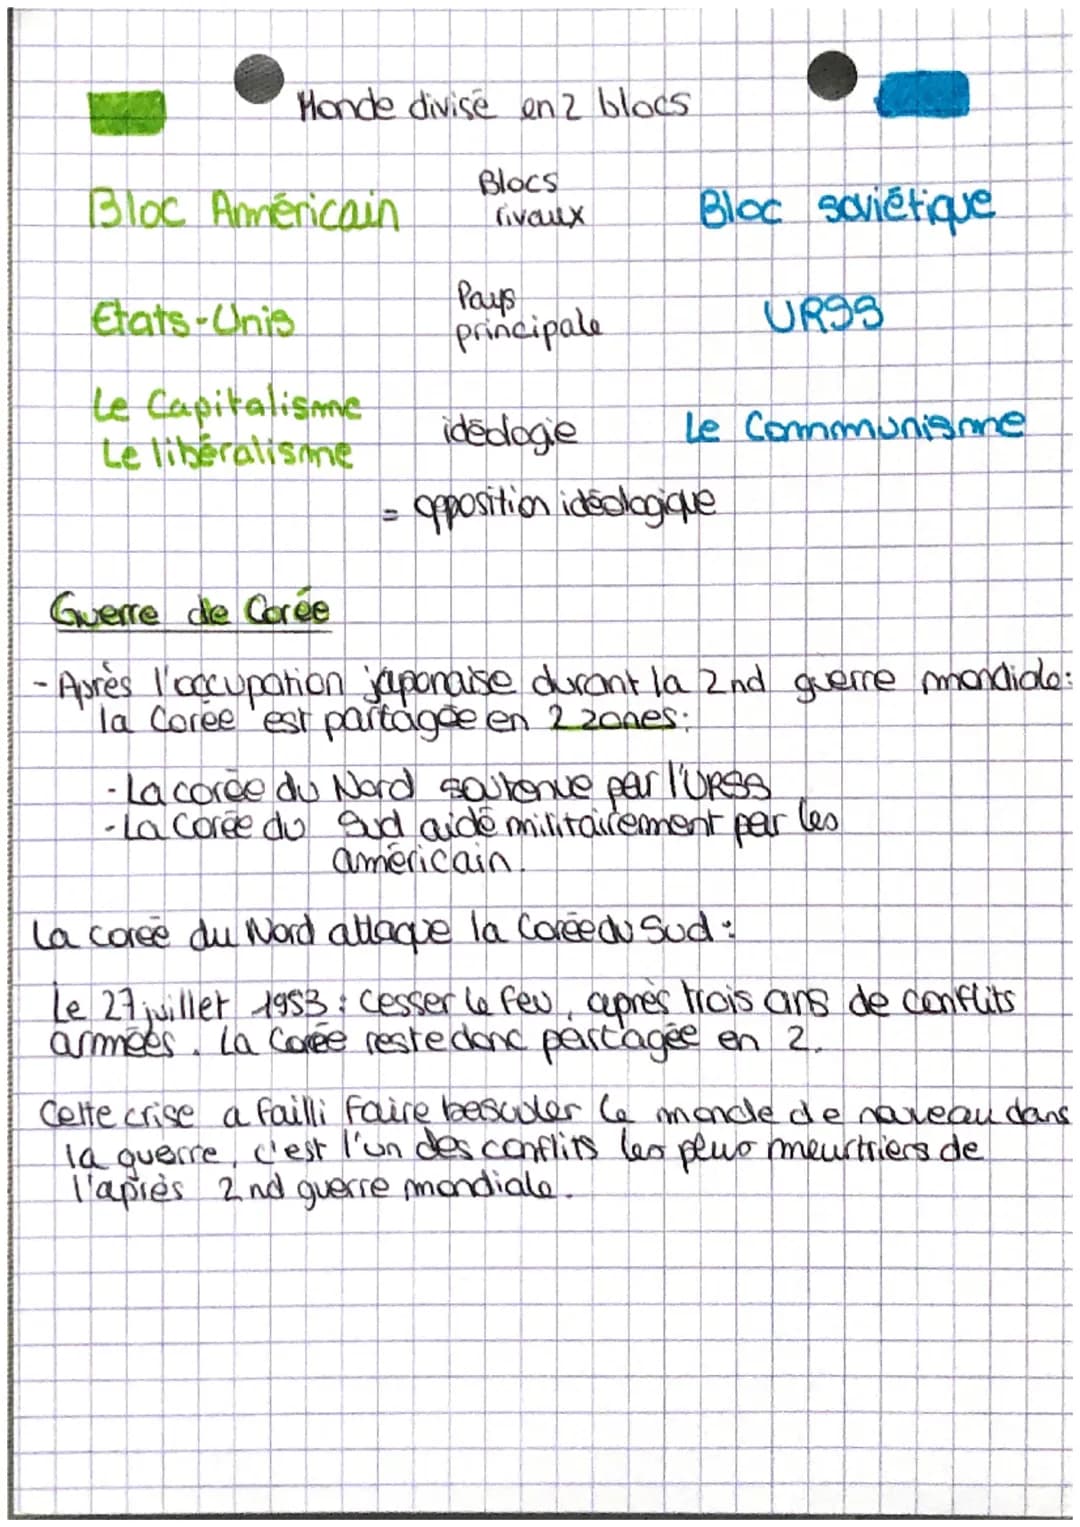 Monde divisé en 2 blocs
Bloc Américain Blocs rivaux Bloc soviétique
Etats-Unis Pays principale URSS
Le Capitalisme
Le libéralisme idéologie Le Communisme
= opposition idéologique
Guerre de Corée
- Après l'occupation japonaise durant la 2nd guerre mondiale:
la Corée est partagée en 2 zones:
- La corée du Nord soutenue par l'URSS
- La Corée du Sud aidé militairement par les
américain.
La corée du Nord attaque la Corée du Sud :
Le 27 juillet 1953 : cesser le feu, après trois ans de conflits
armées. La Corée reste donc partagée en 2.
Cette crise a failli faire basculer le monde de nouveau dans
la guerre, c'est l'un des conflits les plus meurtriers de
l'après 2nd guerre mondiale.